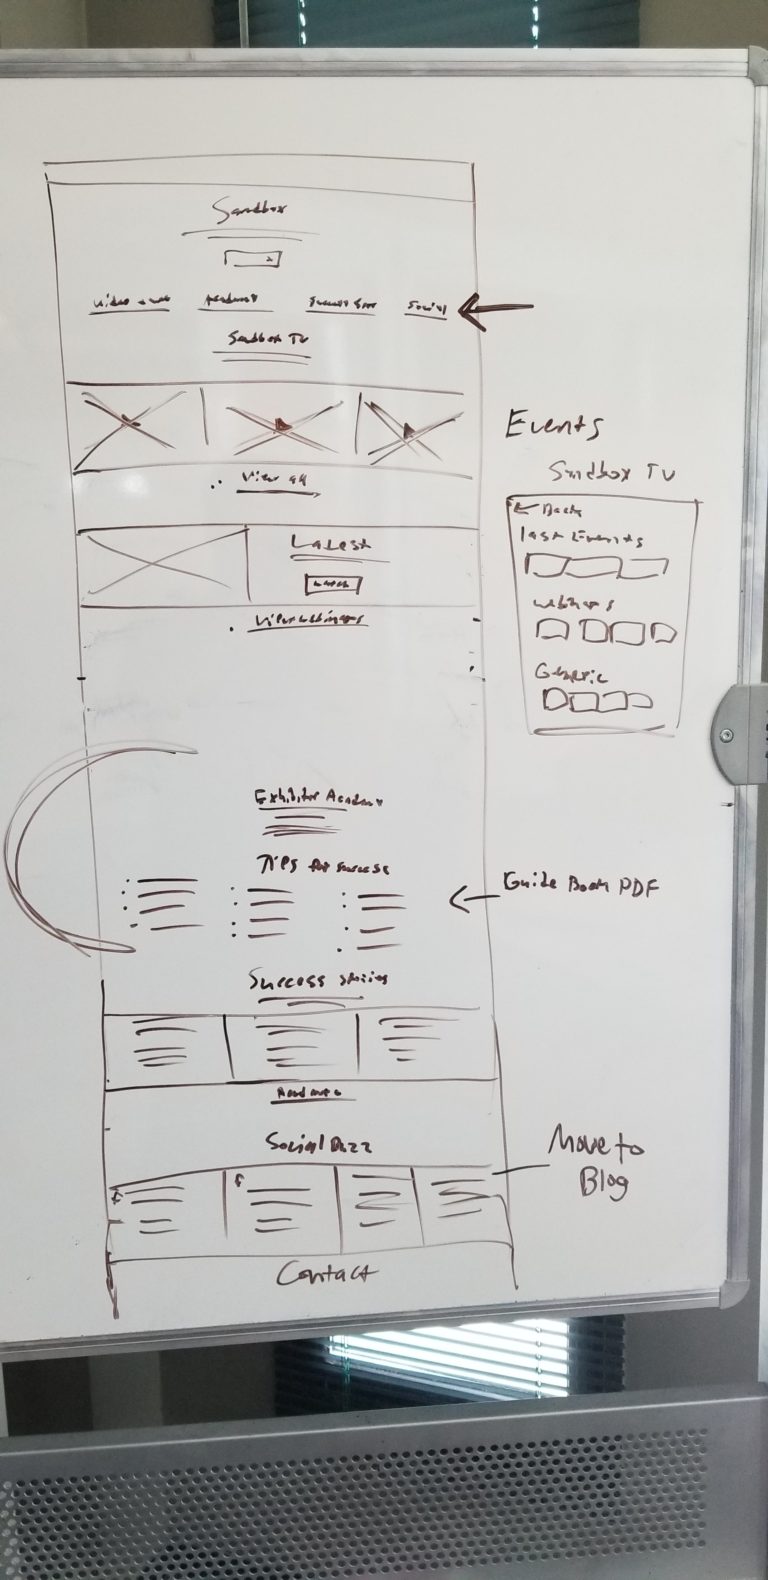 Sandbox
Academy
Social
Sandbox TV
View all
Latest
View webinars
Exhibitor Academy
Tips for success
Success stories
Read more
Social Buzz
Contact
Events
Sandbox TV
← Back
last Events
webinars
Generic
← Guide Book PDF
Move to
Blog